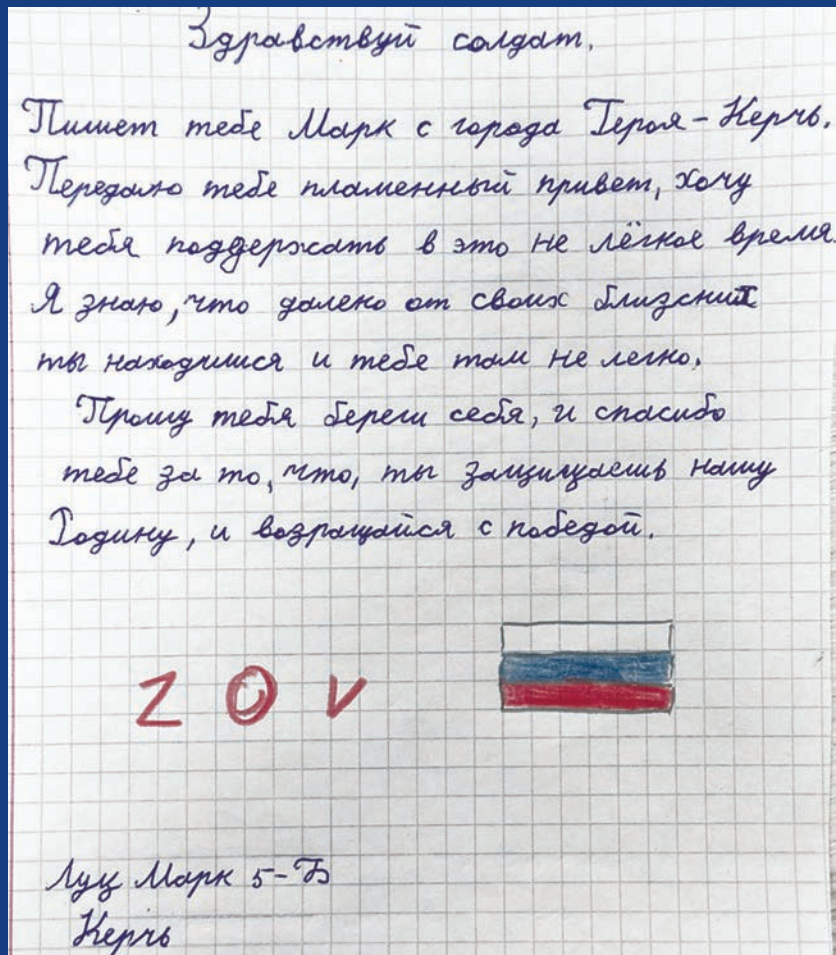 Здравствуй солдат.
Пишет тебе Марк с города Героя - Керчь.
Передаю тебе пламенный привет, хочу
тебя поддержать в это не лёгкое время.
Я знаю, что далеко от своих близких
ты находишся и тебе там не легко.
Прошу тебя береги себя, и спасибо
тебе за то, что, ты защищаешь нашу
Родину, и возращайся с победой.
Z O V
Луц Марк 5-Б
Керчь